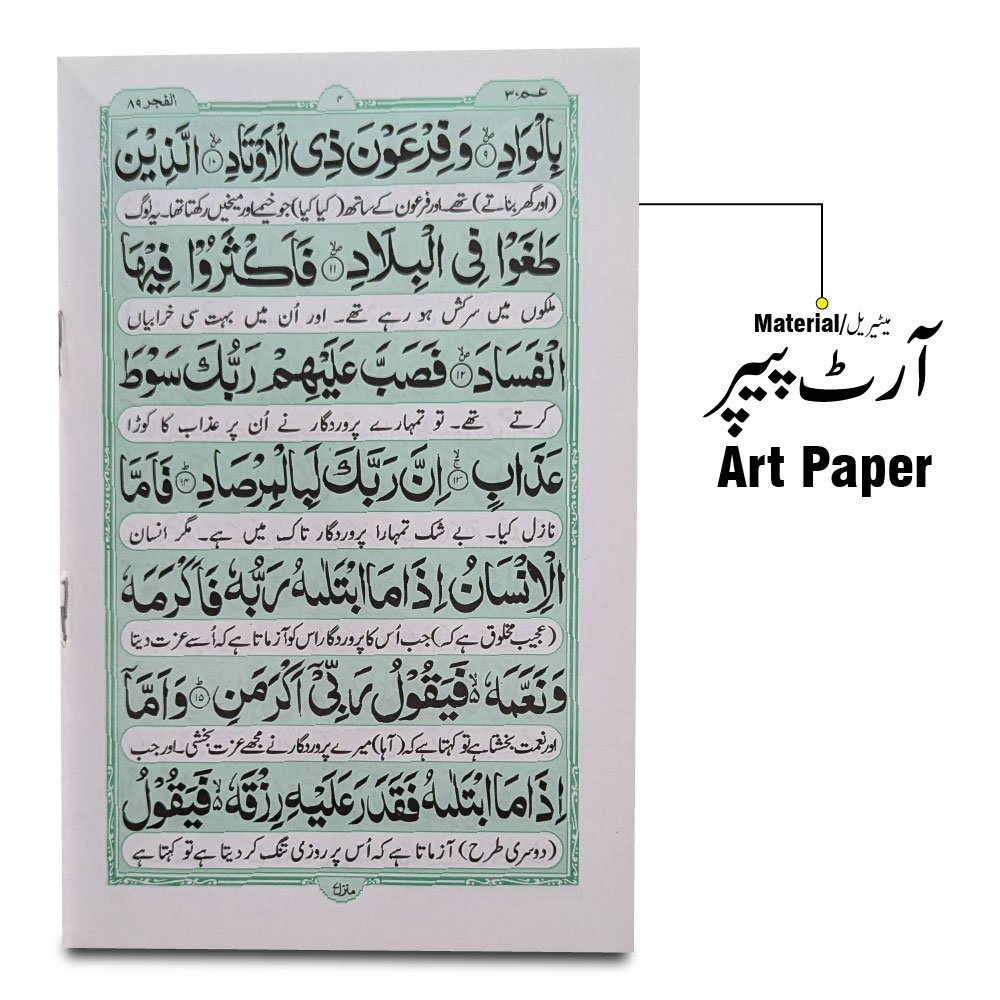 عم ۳۰
۴
الفجر ۸۹
بِالْوَادِ ۪ۙ﴿۹﴾ وَ فِرْعَوْنَ ذِی الْاَوْتَادِ ۪ۙ﴿۱۰﴾ الَّذِیْنَ
(اور گھر بناتے) تھے۔ اور فرعون کے ساتھ (کیا کیا) جو خیمے اور میخیں رکھتا تھا۔ یہ لوگ
طَغَوْا فِی الْبِلَادِ ۪ۙ﴿۱۱﴾ فَاَكْثَرُوْا فِیْهَا
ملکوں میں سرکش ہو رہے تھے۔ اور اُن میں بہت سی خرابیاں
الْفَسَادَ ۪ۙ﴿۱۲﴾ فَصَبَّ عَلَیْهِمْ رَبُّكَ سَوْطَ
کرتے تھے۔ تو تمہارے پروردگار نے اُن پر عذاب کا کوڑا
عَذَابٍ ۚۙ﴿۱۳﴾ اِنَّ رَبَّكَ لَبِالْمِرْصَادِ ؕ﴿۱۴﴾ فَاَمَّا
نازل کیا۔ بے شک تمہارا پروردگار تاک میں ہے۔ مگر انسان
الْاِنْسَانُ اِذَا مَا ابْتَلٰىهُ رَبُّهٗ فَاَكْرَمَهٗ
(عجیب مخلوق ہے کہ) جب اُس کا پروردگار اس کو آزماتا ہے کہ اُسے عزت دیتا
وَ نَعَّمَهٗ ۬ۙ فَیَقُوْلُ رَبِّیْۤ اَكْرَمَنِ ؕ﴿۱۵﴾ وَ اَمَّاۤ
اور نعمت بخشتا ہے تو کہتا ہے کہ (آہا) میرے پروردگار نے مجھے عزت بخشی۔ اور جب
اِذَا مَا ابْتَلٰىهُ فَقَدَرَ عَلَیْهِ رِزْقَهٗ ۬ۙ فَیَقُوْلُ
(دوسری طرح) آزماتا ہے کہ اُس پر روزی تنگ کر دیتا ہے تو کہتا ہے
منزل ۷
Material/میٹیریل
آرٹ پیپر
Art Paper